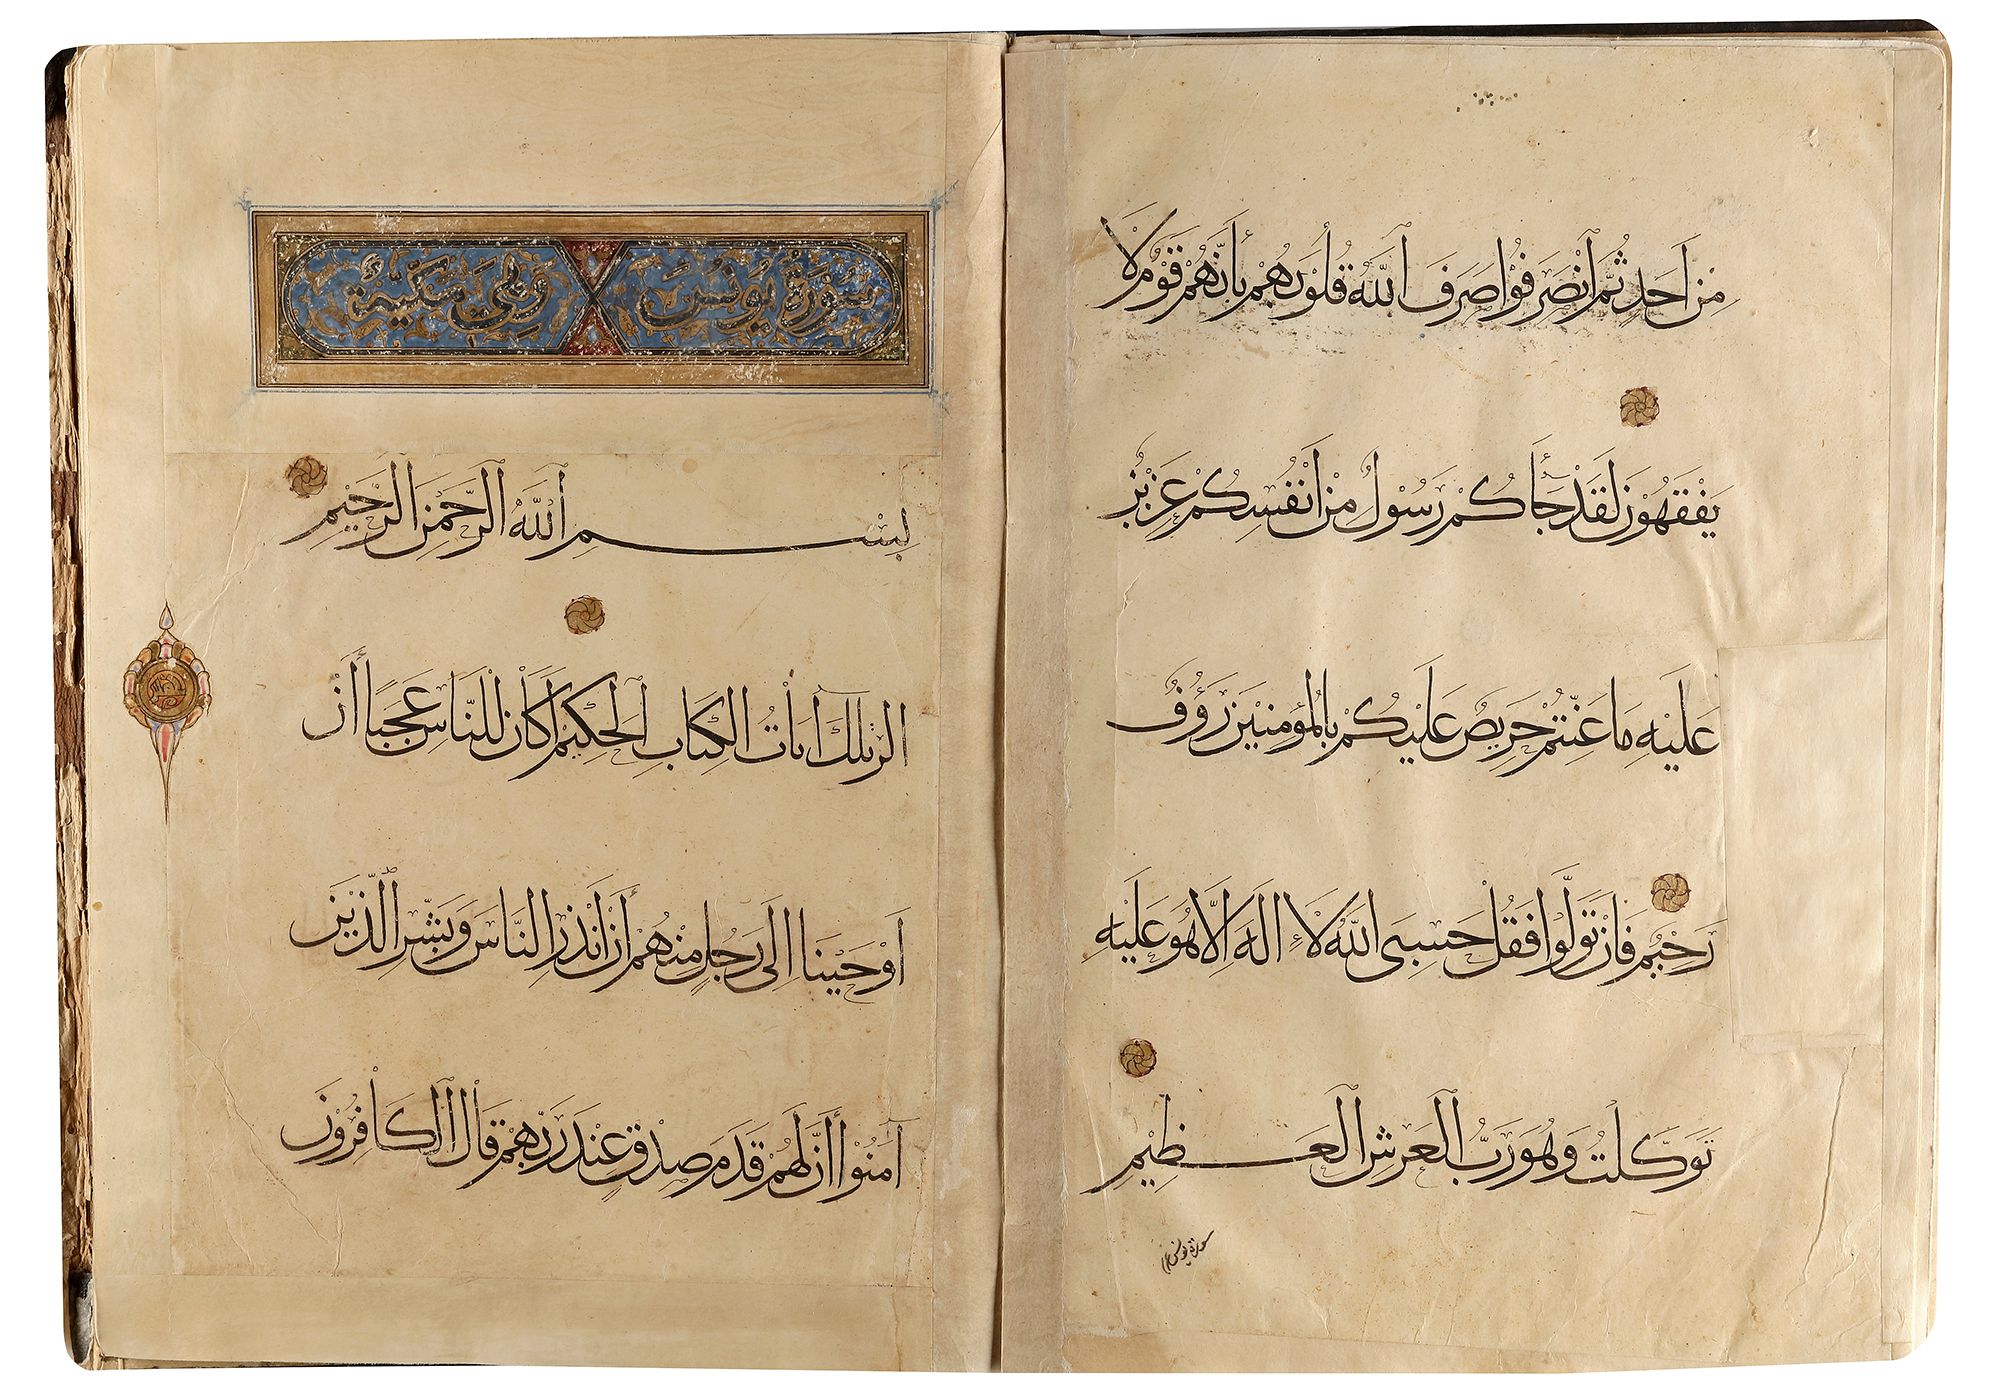 مِنْ أَحَدٍ ثُمَّ ٱنْصَرَفُوا صَرَفَ ٱللَّهُ قُلُوبَهُمْ بِأَنَّهُمْ قَوْمٌ لَا
يَفْقَهُونَ لَقَدْ جَاءَكُمْ رَسُولٌ مِنْ أَنْفُسِكُمْ عَزِيزٌ
عَلَيْهِ مَا عَنِتُّمْ حَرِيصٌ عَلَيْكُمْ بِالْمُؤْمِنِينَ رَؤُوفٌ
رَحِيمٌ فَإِنْ تَوَلَّوْا فَقُلْ حَسْبِيَ اللَّهُ لَا إِلَهَ إِلَّا هُوَ عَلَيْهِ
تَوَكَّلْتُ وَهُوَ رَبُّ ٱلْعَرْشِ ٱلْعَظِيمِ
سورة يونس
سُورَةُ يُونُسَ وَهِيَ مَكِّيَّةٌ
بِسْمِ ٱللَّهِ ٱلرَّحْمَنِ ٱلرَّحِيمِ
الر تِلْكَ آيَاتُ الْكِتَابِ ٱلْحَكِيمِ أَكَانَ لِلنَّاسِ عَجَبًا أَنْ
أَوْحَيْنَا إِلَى رَجُلٍ مِنْهُمْ أَنْ أَنْذِرِ النَّاسَ وَبَشِّرِ ٱلَّذِينَ
آمَنُوا أَنَّ لَهُمْ قَدَمَ صِدْقٍ عِنْدَ رَبِّهِمْ قَالَ ٱلْكَافِرُونَ